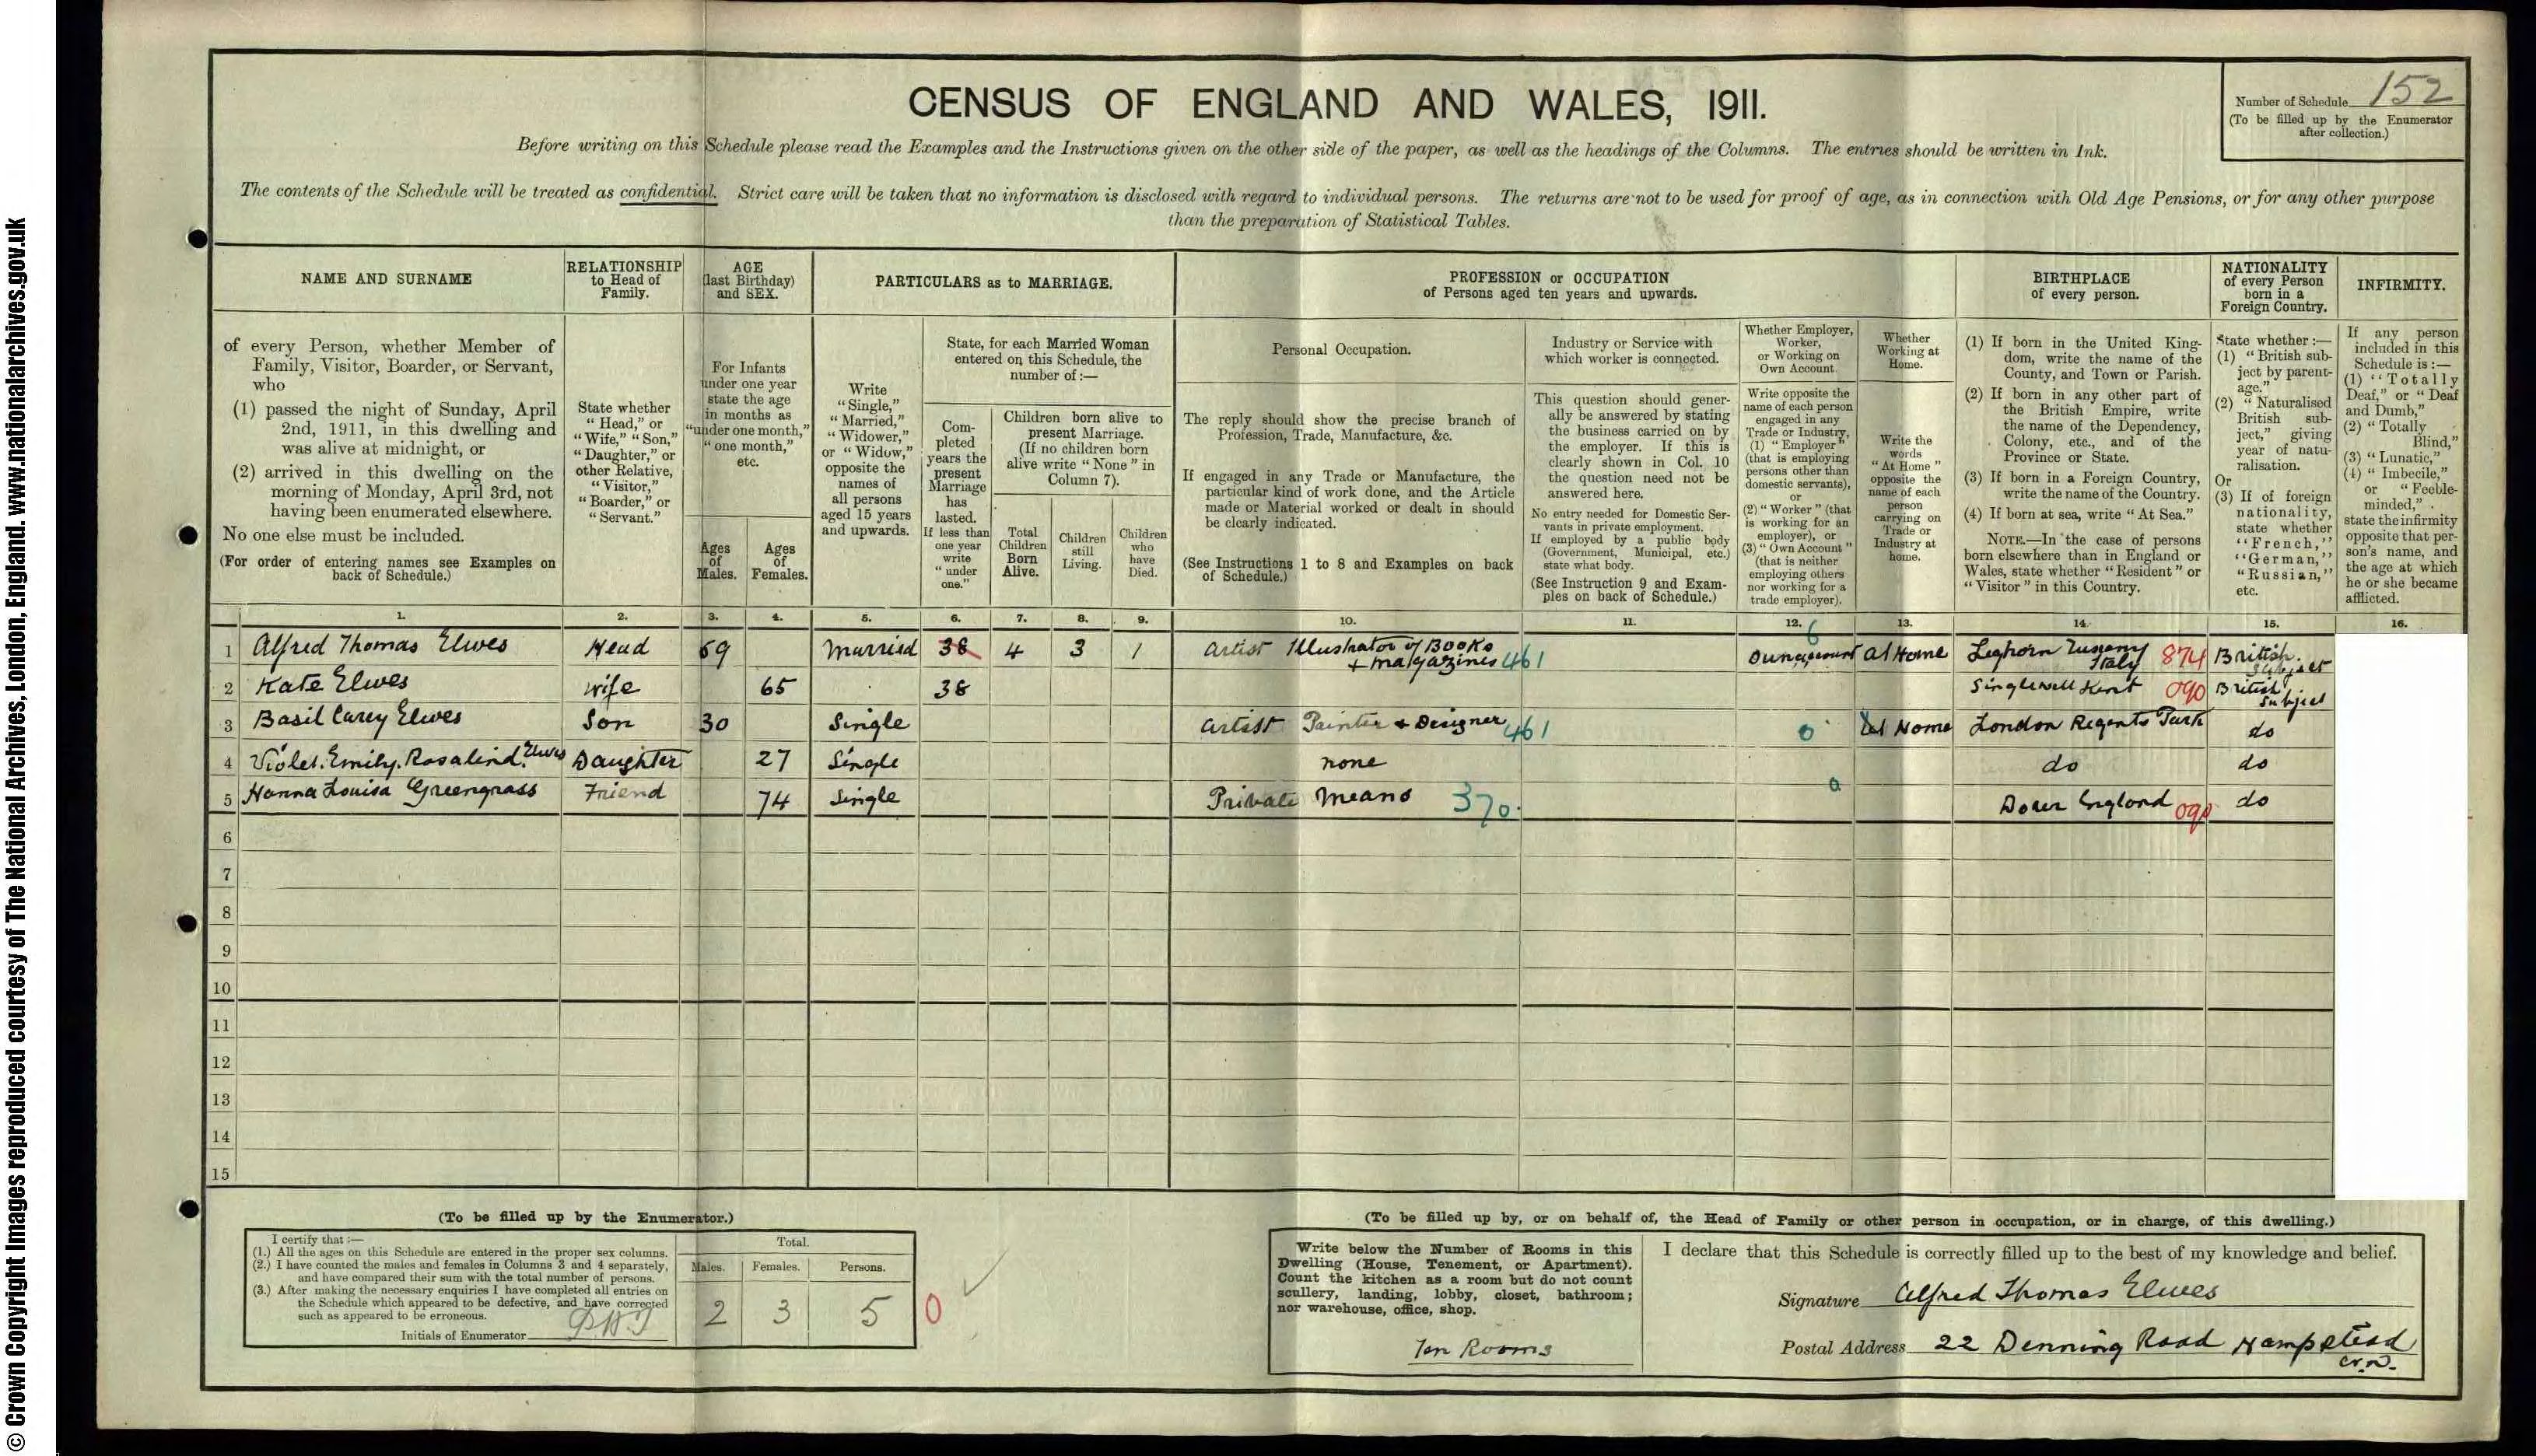 © Crown Copyright Images reproduced courtesy of The National Archives, London, England. www.nationalarchives.gov.uk
CENSUS OF ENGLAND AND WALES, 1911.
Number of Schedule 152
(To be filled up by the Enumerator
after collection.)
Before writing on this Schedule please read the Examples and the Instructions given on the other side of the paper, as well as the headings of the Columns. The entries should be written in Ink.
The contents of the Schedule will be treated as confidential. Strict care will be taken that no information is disclosed with regard to individual persons. The returns are not to be used for proof of age, as in connection with Old Age Pensions, or for any other purpose
than the preparation of Statistical Tables.
NAME AND SURNAME
of every Person, whether Member of
Family, Visitor, Boarder, or Servant,
who
(1) passed the night of Sunday, April
2nd, 1911, in this dwelling and
was alive at midnight, or
(2) arrived in this dwelling on the
morning of Monday, April 3rd, not
having been enumerated elsewhere.
No one else must be included.
(For order of entering names see Examples on
back of Schedule.)
RELATIONSHIP
to Head of
Family.
State whether
"Head," or
"Wife," "Son,"
"Daughter," or
other Relative,
"Visitor,"
"Boarder," or
"Servant."
AGE
(last Birthday)
and SEX.
For Infants
under one year
state the age
in months as
"under one month,"
"one month,"
etc.
Ages
of
Males.
Ages
of
Females.
PARTICULARS as to MARRIAGE.
Write
"Single,"
"Married,"
"Widower,"
or "Widow,"
opposite the
names of
all persons
aged 15 years
and upwards.
State, for each Married Woman
entered on this Schedule, the
number of :—
Com-
pleted
years the
present
Marriage
has
lasted.
If less than
one year
write
"under
one."
Children born alive to
present Marriage.
(If no children born
alive write "None" in
Column 7).
Total
Children
Born
Alive.
Children
still
Living.
Children
who
have
Died.
PROFESSION or OCCUPATION
of Persons aged ten years and upwards.
Personal Occupation.
The reply should show the precise branch of
Profession, Trade, Manufacture, &c.
If engaged in any Trade or Manufacture, the
particular kind of work done, and the Article
made or Material worked or dealt in should
be clearly indicated.
(See Instructions 1 to 8 and Examples on back
of Schedule.)
Industry or Service with
which worker is connected.
This question should gener-
ally be answered by stating
the business carried on by
the employer. If this is
clearly shown in Col. 10
the question need not be
answered here.
No entry needed for Domestic Ser-
vants in private employment.
If employed by a public body
(Government, Municipal, etc.)
state what body.
(See Instruction 9 and Exam-
ples on back of Schedule.)
Whether Employer,
Worker,
or Working on
Own Account.
Write opposite the
name of each person
engaged in any
Trade or Industry,
(1) "Employer"
(that is employing
persons other than
domestic servants),
or
(2) "Worker" (that
is working for an
employer), or
(3) "Own Account"
(that is neither
employing others
nor working for a
trade employer).
Whether
Working at
Home.
Write the
words
"At Home"
opposite the
name of each
person
carrying on
Trade or
Industry at
home.
BIRTHPLACE
of every person.
(1) If born in the United King-
dom, write the name of the
County, and Town or Parish.
(2) If born in any other part of
the British Empire, write
the name of the Dependency,
Colony, etc., and of the
Province or State.
(3) If born in a Foreign Country,
write the name of the Country.
(4) If born at sea, write "At Sea."
NOTE.—In the case of persons
born elsewhere than in England or
Wales, state whether "Resident" or
"Visitor" in this Country.
NATIONALITY
of every Person
born in a
Foreign Country.
State whether :—
(1) "British sub-
ject by parent-
age."
(2) "Naturalised
British sub-
ject," giving
year of natu-
ralisation.
Or
(3) If of foreign
nationality,
state whether
"French,"
"German,"
"Russian,"
etc.
INFIRMITY.
If any person
included in this
Schedule is :—
(1) "Totally
Deaf," or "Deaf
and Dumb,"
(2) "Totally
Blind,"
(3) "Lunatic,"
(4) "Imbecile,"
or "Feeble-
minded,"
state the infirmity
opposite that per-
son's name, and
the age at which
he or she became
afflicted.
1. 2. 3. 4. 5. 6. 7. 8. 9. 10. 11. 12. 13. 14. 15. 16.
1 Alfred Thomas Elwes Head 69 Married 38 4 3 1 Artist Illustrator of Books + Magazines 461 6 Own account At Home Leghorn Tuscany Italy 874 British Subject
2 Kate Elwes wife 65 38 Singlewell Kent 090 British Subject
3 Basil Carey Elwes Son 30 Single Artist Painter + Designer 461 0 At Home London Regents Park do
4 Violet Emily Rosalind Elwes Daughter 27 Single none do do
5 Hanna Louisa Greengrass Friend 74 Single Private Means 370 0 Dover England 090 do
6
7
8
9
10
11
12
13
14
15
(To be filled up by the Enumerator.)
I certify that :—
(1.) All the ages on this Schedule are entered in the proper sex columns.
(2.) I have counted the males and females in Columns 3 and 4 separately,
and have compared their sum with the total number of persons.
(3.) After making the necessary enquiries I have completed all entries on
the Schedule which appeared to be defective, and have corrected
such as appeared to be erroneous.
Initials of Enumerator
Total.
Males. Females. Persons.
2 3 5 0
(To be filled up by, or on behalf of, the Head of Family or other person in occupation, or in charge, of this dwelling.)
Write below the Number of Rooms in this
Dwelling (House, Tenement, or Apartment).
Count the kitchen as a room but do not count
scullery, landing, lobby, closet, bathroom;
nor warehouse, office, shop.
Ten Rooms
I declare that this Schedule is correctly filled up to the best of my knowledge and belief.
Signature Alfred Thomas Elwes
Postal Address 22 Denning Road Hampstead